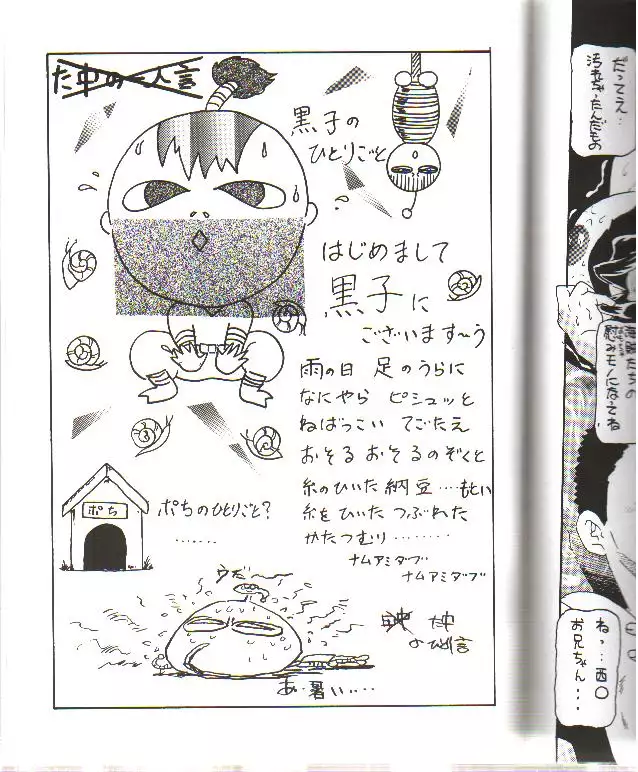 た中の一人言
黒子の
ひとりごと
はじめまして
黒子に
ございます〜う
雨の日 足のうらに
なにやら ピシュッと
ねばっこい てごたえ
おそるおそるのぞくと
糸のひいた納豆……もとい
糸をひいた つぶれた
かたつむり………
ナムアミダブ
ナムアミダブ
ポち
ポちのひとりごと?
……
うだ〜
た中
のひと言
あ・暑い……
だってえ…
汚れちゃったんだもの
たちの
慰みモノになってね
ねっ…西〇
お兄ちゃん...